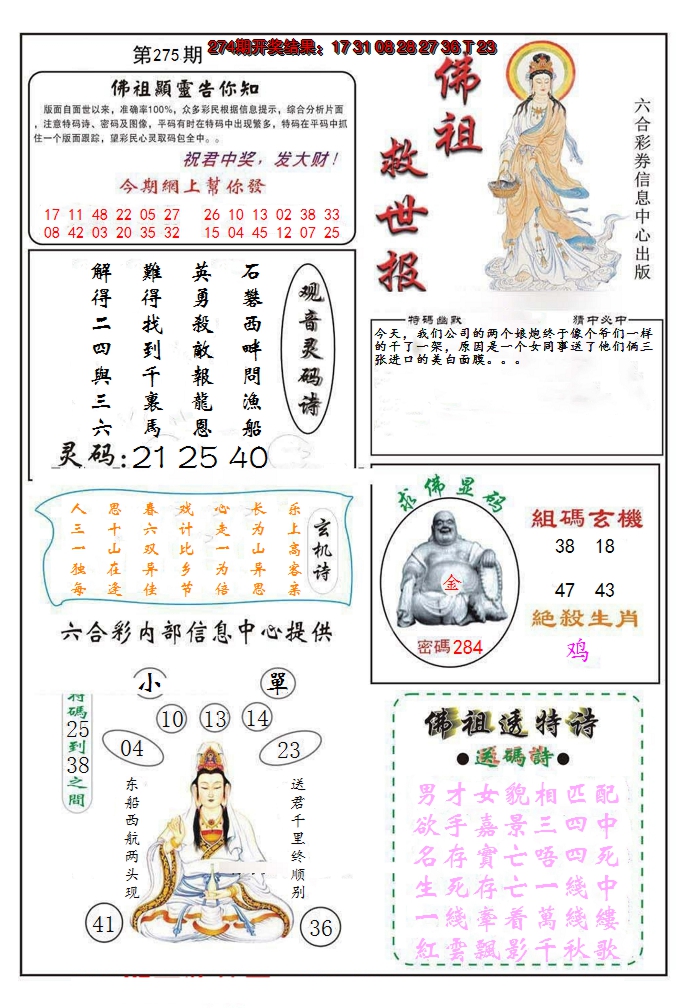 第275期
274期开奖结果：17 31 08 28 27 36 T 23
佛祖顯靈告你知
版面自面世以来，准确率100%，众多彩民根据信息提示，综合分析片面
，注意特码诗、密码及图像，平码有时在特码中出现繁多，特码在平码中抓
住一个版面跟踪，望彩民心灵取码包全中。。
祝君中奖，发大财！
今期網上幫你發
17 11 48 22 05 27 26 10 13 02 38 33
08 42 03 20 35 32 15 04 45 12 07 25
佛祖
救世报
六合彩券信息中心出版
观音灵码诗
石礬西畔問漁船
英勇殺敵報龍恩
難得找到千裏馬
解得二四與三六
灵码:21 25 40
特碼幽默
猜中必中
今天，我们公司的两个娘炮终于像个爷们一样
的干了一架，原因是一个女同事送了他们俩三
张进口的美白面膜。。。
玄机诗
乐上高客亲
长为山异思
心走一为倍
戏计比乡节
春六双异佳
思十山在逢
人三一独每
六合彩内部信息中心提供
求佛显码
金
密碼284
組碼玄機
38 18
47 43
絶殺生肖
鸡
小
單
特碼25到38之間
10 13 14
04
23
东船西航两头现
送君千里终顺别
41
36
佛祖透特诗
●送碼詩●
男才女貌相匹配
欲手嘉景三四中
名存實亡唔四死
生死存亡一綫中
一綫牽着萬綫縷
紅雲飄影千秋歌